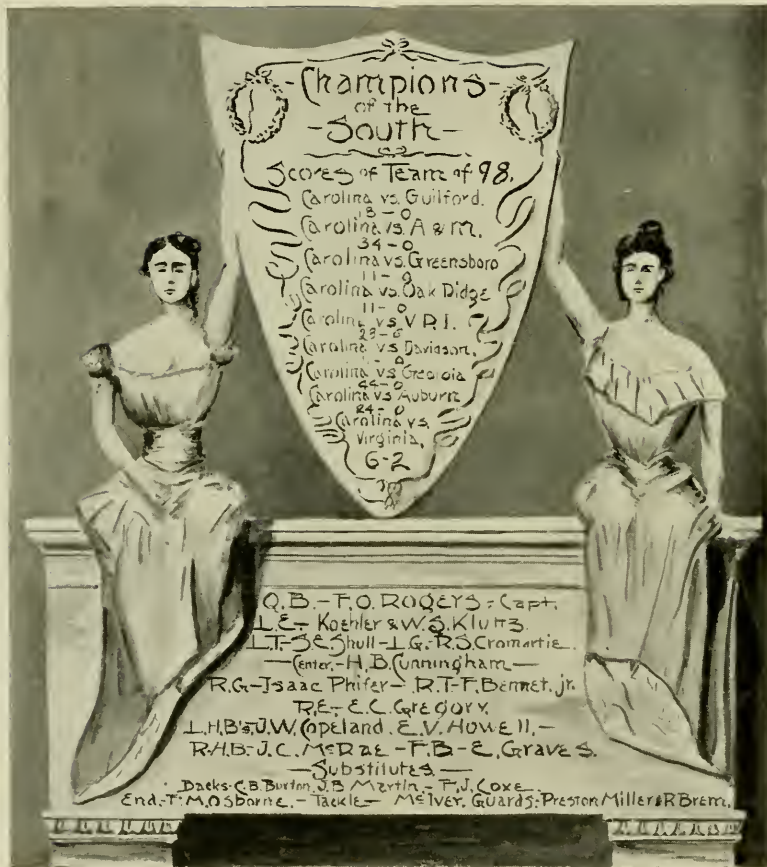 -Champions-
of the
-South-
Scores of Team of 98.
Carolina vs. Guilford.
18-0
Carolina vs. A & M.
34-0
Carolina vs. Greensboro
11-0
Carolina vs. Oak Didge
11-0
Carolina vs. V.P.I.
28-0
Carolina vs. Davidson.
-0
Carolina vs Georgia
44-0
Carolina vs Auburn
24-0
Carolina vs.
Virginia,
6-2
Q.B.-F.O. ROGERS-Capt.
L.E.- Koehler & W.S. Kluttz.
L.T-S.E. Shull-L.G. R.S. Cromartie.
-Center.-H.B. Cunningham-
R.G-Isaac Phifer- R.T-F. Bennet. jr.
R.E-E.C. Gregory.
L.H.B's, J.W. Copeland. E.V. Howell.-
R.H.B-J.C. McRae-F.B-E. Graves.
-Substitutes-
Backs-C.B. Burton, J.B Martin-F.J. Coxe.
End,-T.M. Osborne.- Tackle- McIver. Guards;-Preston Miller & R Brem.